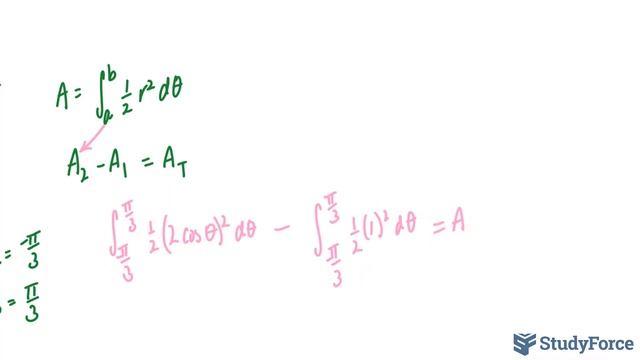 A = ∫_a^b 1/2 r² dθ
A₂ - A₁ = A_T
∫_{π/3}^{π/3} 1/2 (2 cos θ)² dθ - ∫_{π/3}^{π/3} 1/2 (1)² dθ = A
= -π/3
= π/3
StudyForce